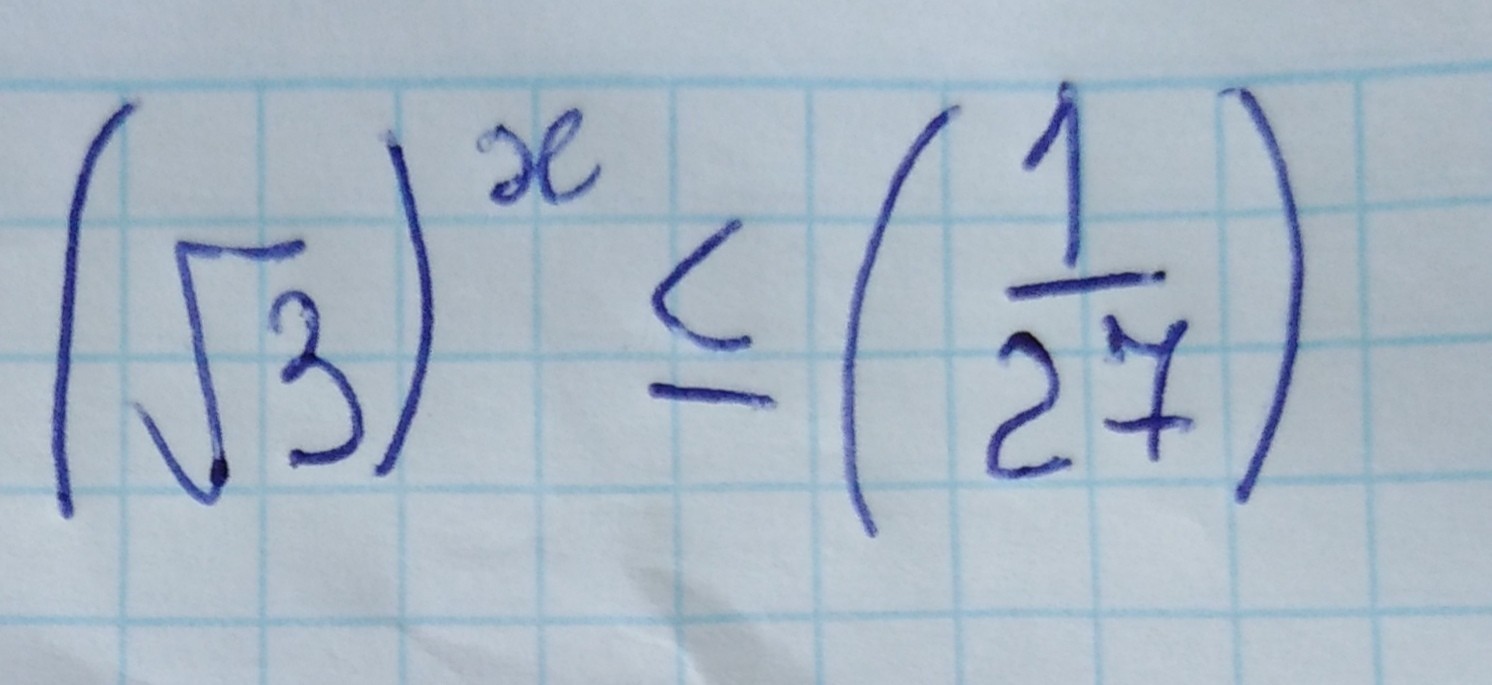 (√3)^x ≤ (1/27)